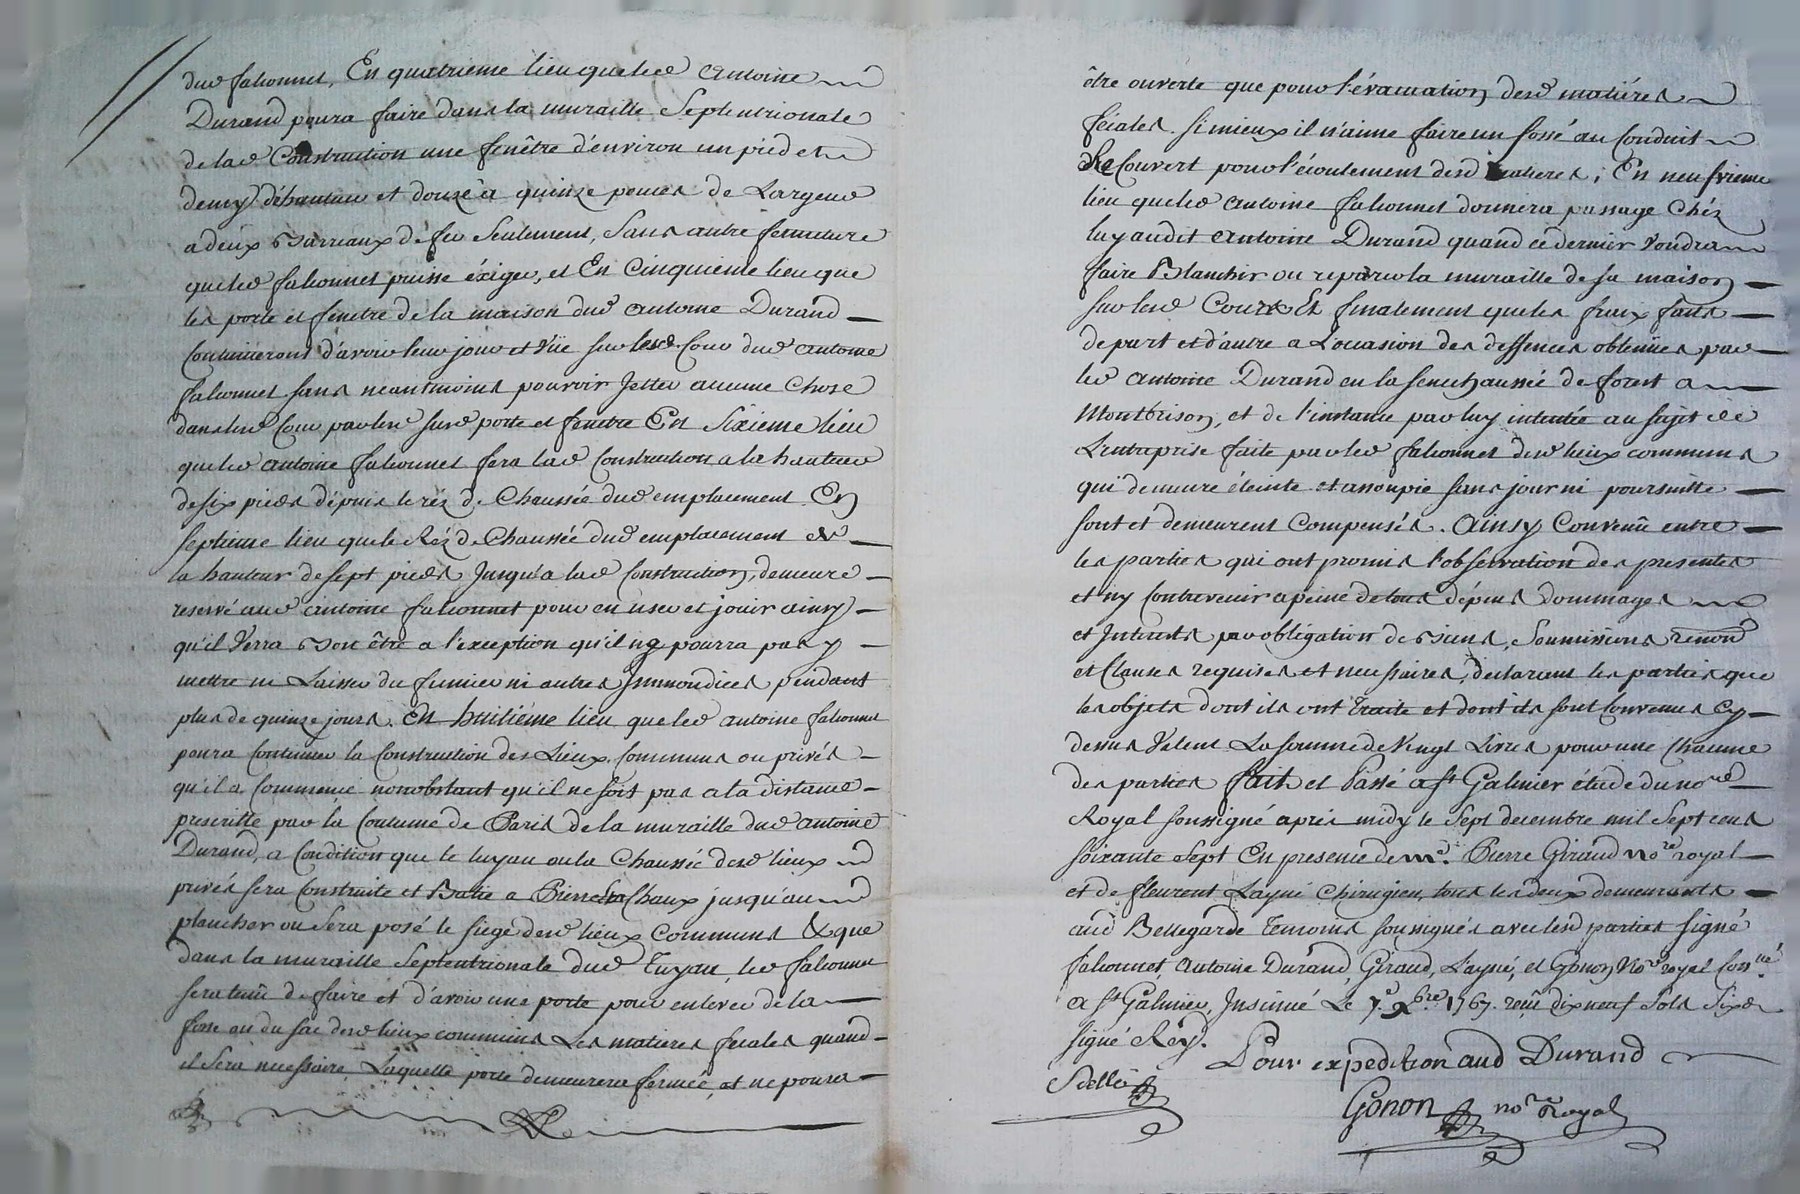 dud falionnet, En quatrieme lieu queled Antoine
Durand poura faire dans la muraille Septentrionale
de lad Construction une fenêtre d'environ un pied et
demy d'hauteur et douze à quinze pouces de Largeur
a deux Barreaux de fer Seulement, Sans autre fermeture
queled falionnet puisse éxiger, et En Cinquieme lieu que
les porte et fenetre de la maison dud antoine Durand
Continueront d'avoir leur jour et Vüe sur lesd. Cour dud antoine
falionnet sans neantmoins pouvoir Jetter aucune Chose
dans lad Cour par les susd porte et fenetre En Sixieme lieu
queled antoine falionnet fera lad Construction a la hauteur
de six pieds dépuis le réz de Chaussée dud emplacement En
septieme lieu que le Réz de Chaussée dud emplacement et
la hauteur de sept pieds Jusqu'a lad Construction, demeure
reservé aud antoine falionnet pour en user et jouir ainsy
qu'il Verra Bon être a l'exception qu'il ne pourra pas y
mettre ni Laisser du fumier ni autres Jmmondices pendant
plus de quinze jours. En huitiéme lieu queled antoine falionnet
poura Continuer la Construction des Lieux Communs ou privés
qu'il a Commencé nonobstant qu'il ne soit pas a la distance
prescritte par la Coutume de Paris de la muraille dud antoine
Durand, a Condition que le tuyau ou la Chaussée desd lieux
privés sera Construite et Batie a Pierre et a Chaux jusqu'au
plancher ou Sera posé le siege desd lieux Communs & que
dans la muraille Septentrionale dud Tuyau led falionnet
sera tenû de faire et d'avoir une porte pour enlever de la
fosse ou du sac desd lieux communs Les matieres fecales quand
il Sera necessaire, Laquelle porte demeurera fermée, et ne poura
être ouverte que pour l'évacuation desd matiéres
fécales. si mieux il n'aime faire un fossé ou Conduit
Recouvert pour l'écoulement desd matieres; En neufvieme
lieu queled antoine falionnet donnera passage Chéz
luy audit antoine Durand quand ce dernier Voudra
faire Blanchir ou reparer la muraille de sa maison
sur lesd Cours Et finalement que les fraix faits
de part et d'autre a L'occasion des deffences obtenües par
led antoine Durand en la senechaussée de forest a
Montbrison, et de l'instance par luy intentée au sujet de
L'entreprise faite par led falionnet desd lieux communs
qui demeure éteinte et assoupie sans jour ni poursuitte
sont et demeurent Compensés. Ainsy Convenû entre
les parties qui ont promis l'observation des presentes
et ny Contrevenir a peine de tous dépens dommages
et Jnterets par obligation de Biens, Soumissions renon
et Clauses requises et necessaires, declarant les parties que
les objets dont ils ont Traité et dont ils sont Convenus Cy
dessus Valent La somme de Vingt Livres pour une Chacune
des parties fait et Passé a St Galmier étude du nore
Royal soussigné aprés midy le Sept decembre mil Sept cens
soixante Sept En presence de me. Pierre Giraud nore royal
et de fleurent Layné Chirugien, tous les deux demeurants
aud Bellegarde Temoins soussignés avec lesd parties signé
falionnet, Antoine Durand, Giraud, Layné, et Gonon Nore royal
a St Galmier, Jnsinué Le 7.e Xbre. 1767. reçû dix neuf Sols Six d
signé Réy.
Pour expedition aud Durand
Gonon nore Royal